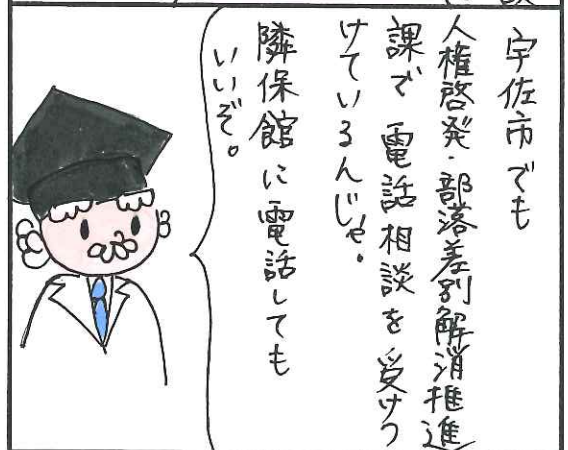 宇佐市でも
人権啓発・部落差別解消推進
課で電話相談を受けつ
けているんじゃ。
隣保館に電話しても
いいぞ。